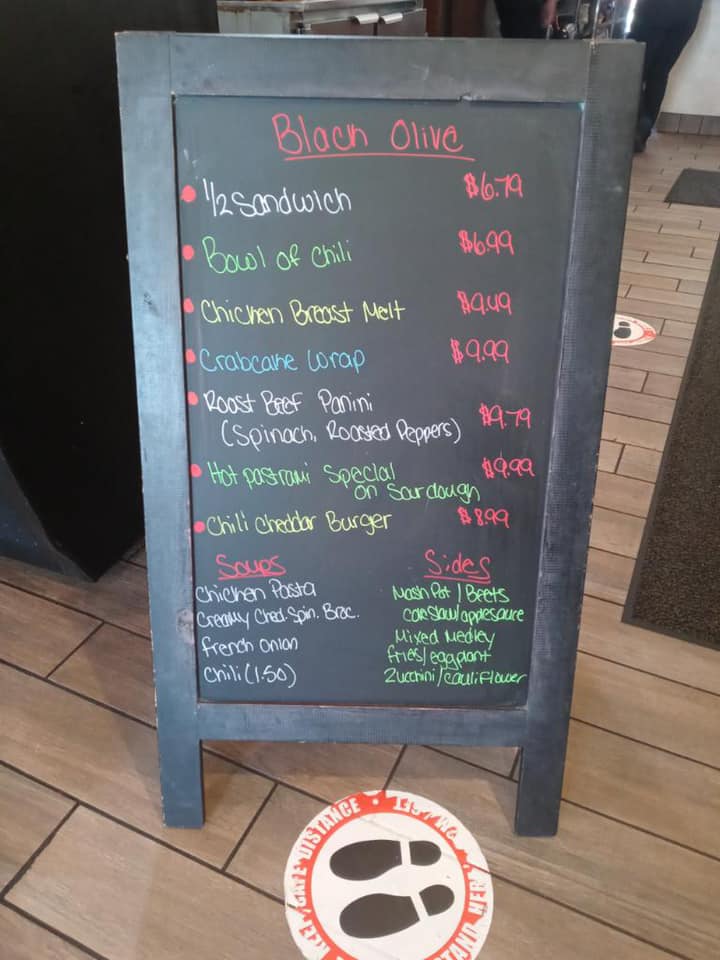 Black Olive
1/2 Sandwich $6.79
Bowl of Chili $6.99
Chicken Breast Melt $9.49
Crabcake Wrap $9.99
Roast Beef Panini
(Spinach, Roasted Peppers) $9.79
Hot pastrami Special $9.99
on Sourdough
Chili Cheddar Burger $8.99
Soups
Chicken Pasta
Creamy Ched. Spin. Broc.
French Onion
Chili (1.50)
Sides
Mash Pot / Beets
coleslaw/applesauce
Mixed Medley
fries/eggplant
Zucchini/cauliflower
KEEP SAFE DISTANCE
STAND HERE